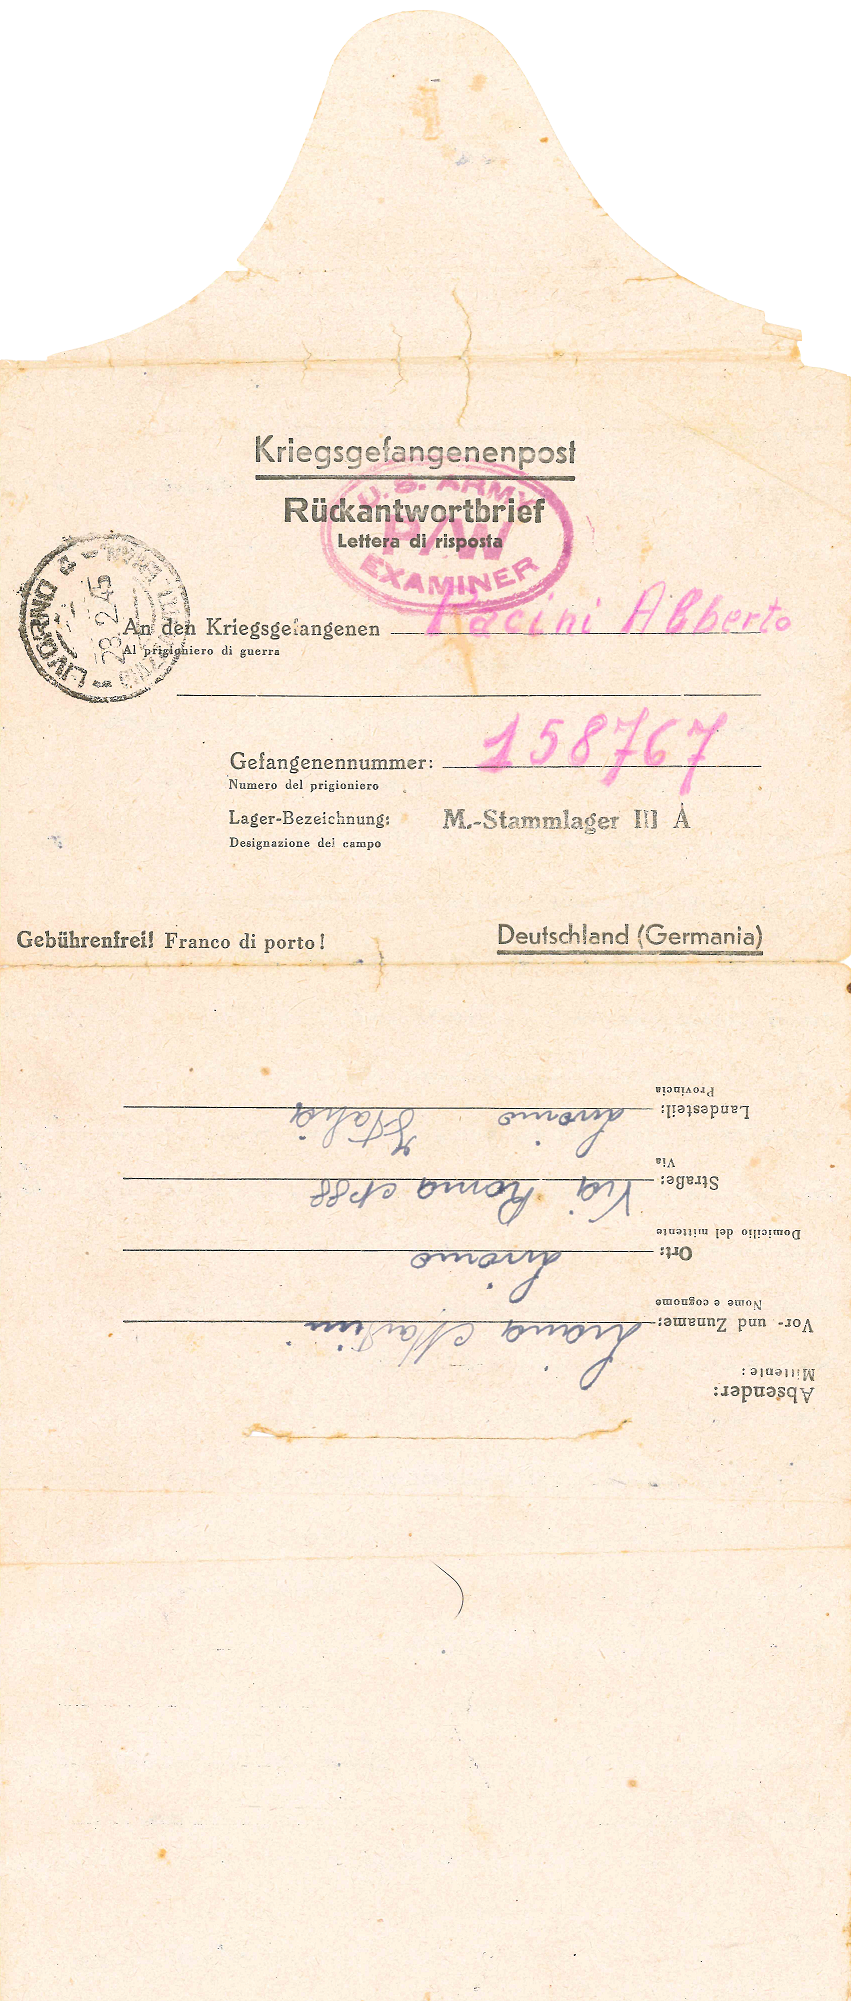 Kriegsgefangenenpost
Rückantwortbrief
Lettera di risposta
U.S. ARMY
P/W
EXAMINER
LIVORNO
28.2.45
An den Kriegsgefangenen Pacini Alberto
Al prigioniero di guerra
Gefangenennummer: 158767
Numero del prigioniero
Lager-Bezeichnung: M.-Stammlager III A
Designazione del campo
Gebührenfrei! Franco di porto!
Deutschland (Germania)
Absender:
Mittente:
Vor- und Zuname: Liana Martini
Nome e cognome
Ort: Livorno
Domicilio del mittente
Straße: Via Roma N° 88
Via
Landesteil: Livorno Italia
Provincia